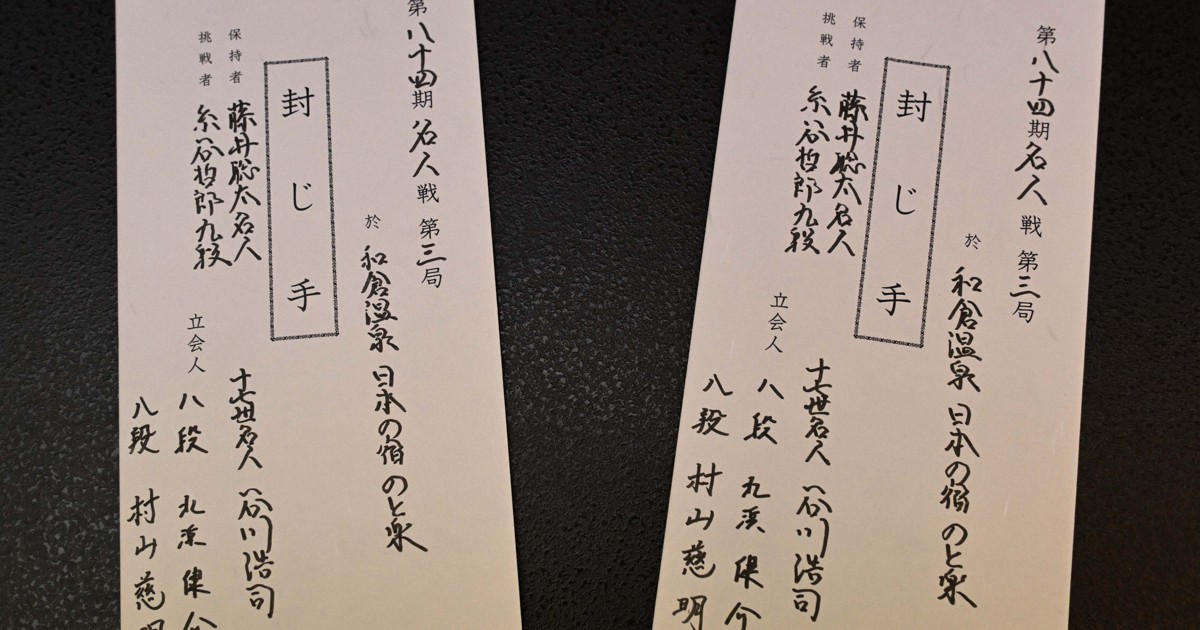 第八十四期名人戦 第三局
於 和倉温泉 日本の宿 のと楽
封じ手
保持者 藤井聡太名人
挑戦者 糸谷哲郎九段
立会人
十七世名人 谷川浩司
八段 北浜健介
八段 村山慈明
第八十四期名人戦 第三局
於 和倉温泉 日本の宿 のと楽
封じ手
保持者 藤井聡太名人
挑戦者 糸谷哲郎九段
立会人
十七世名人 谷川浩司
八段 北浜健介
八段 村山慈明